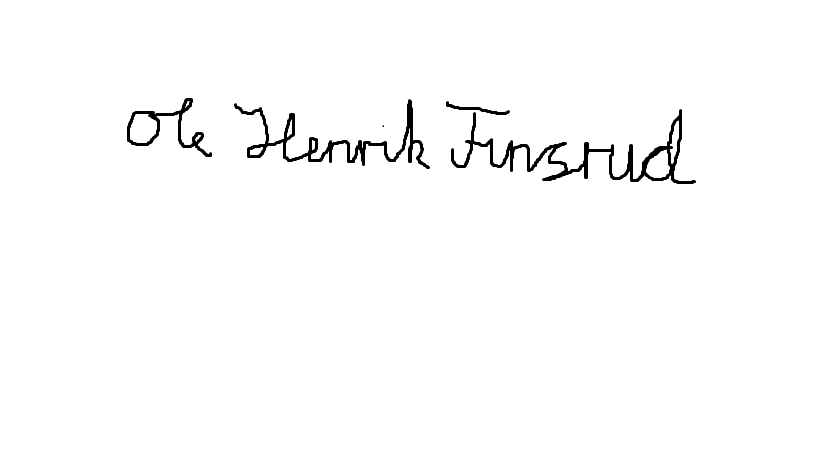 Ole Henrik Finsrud